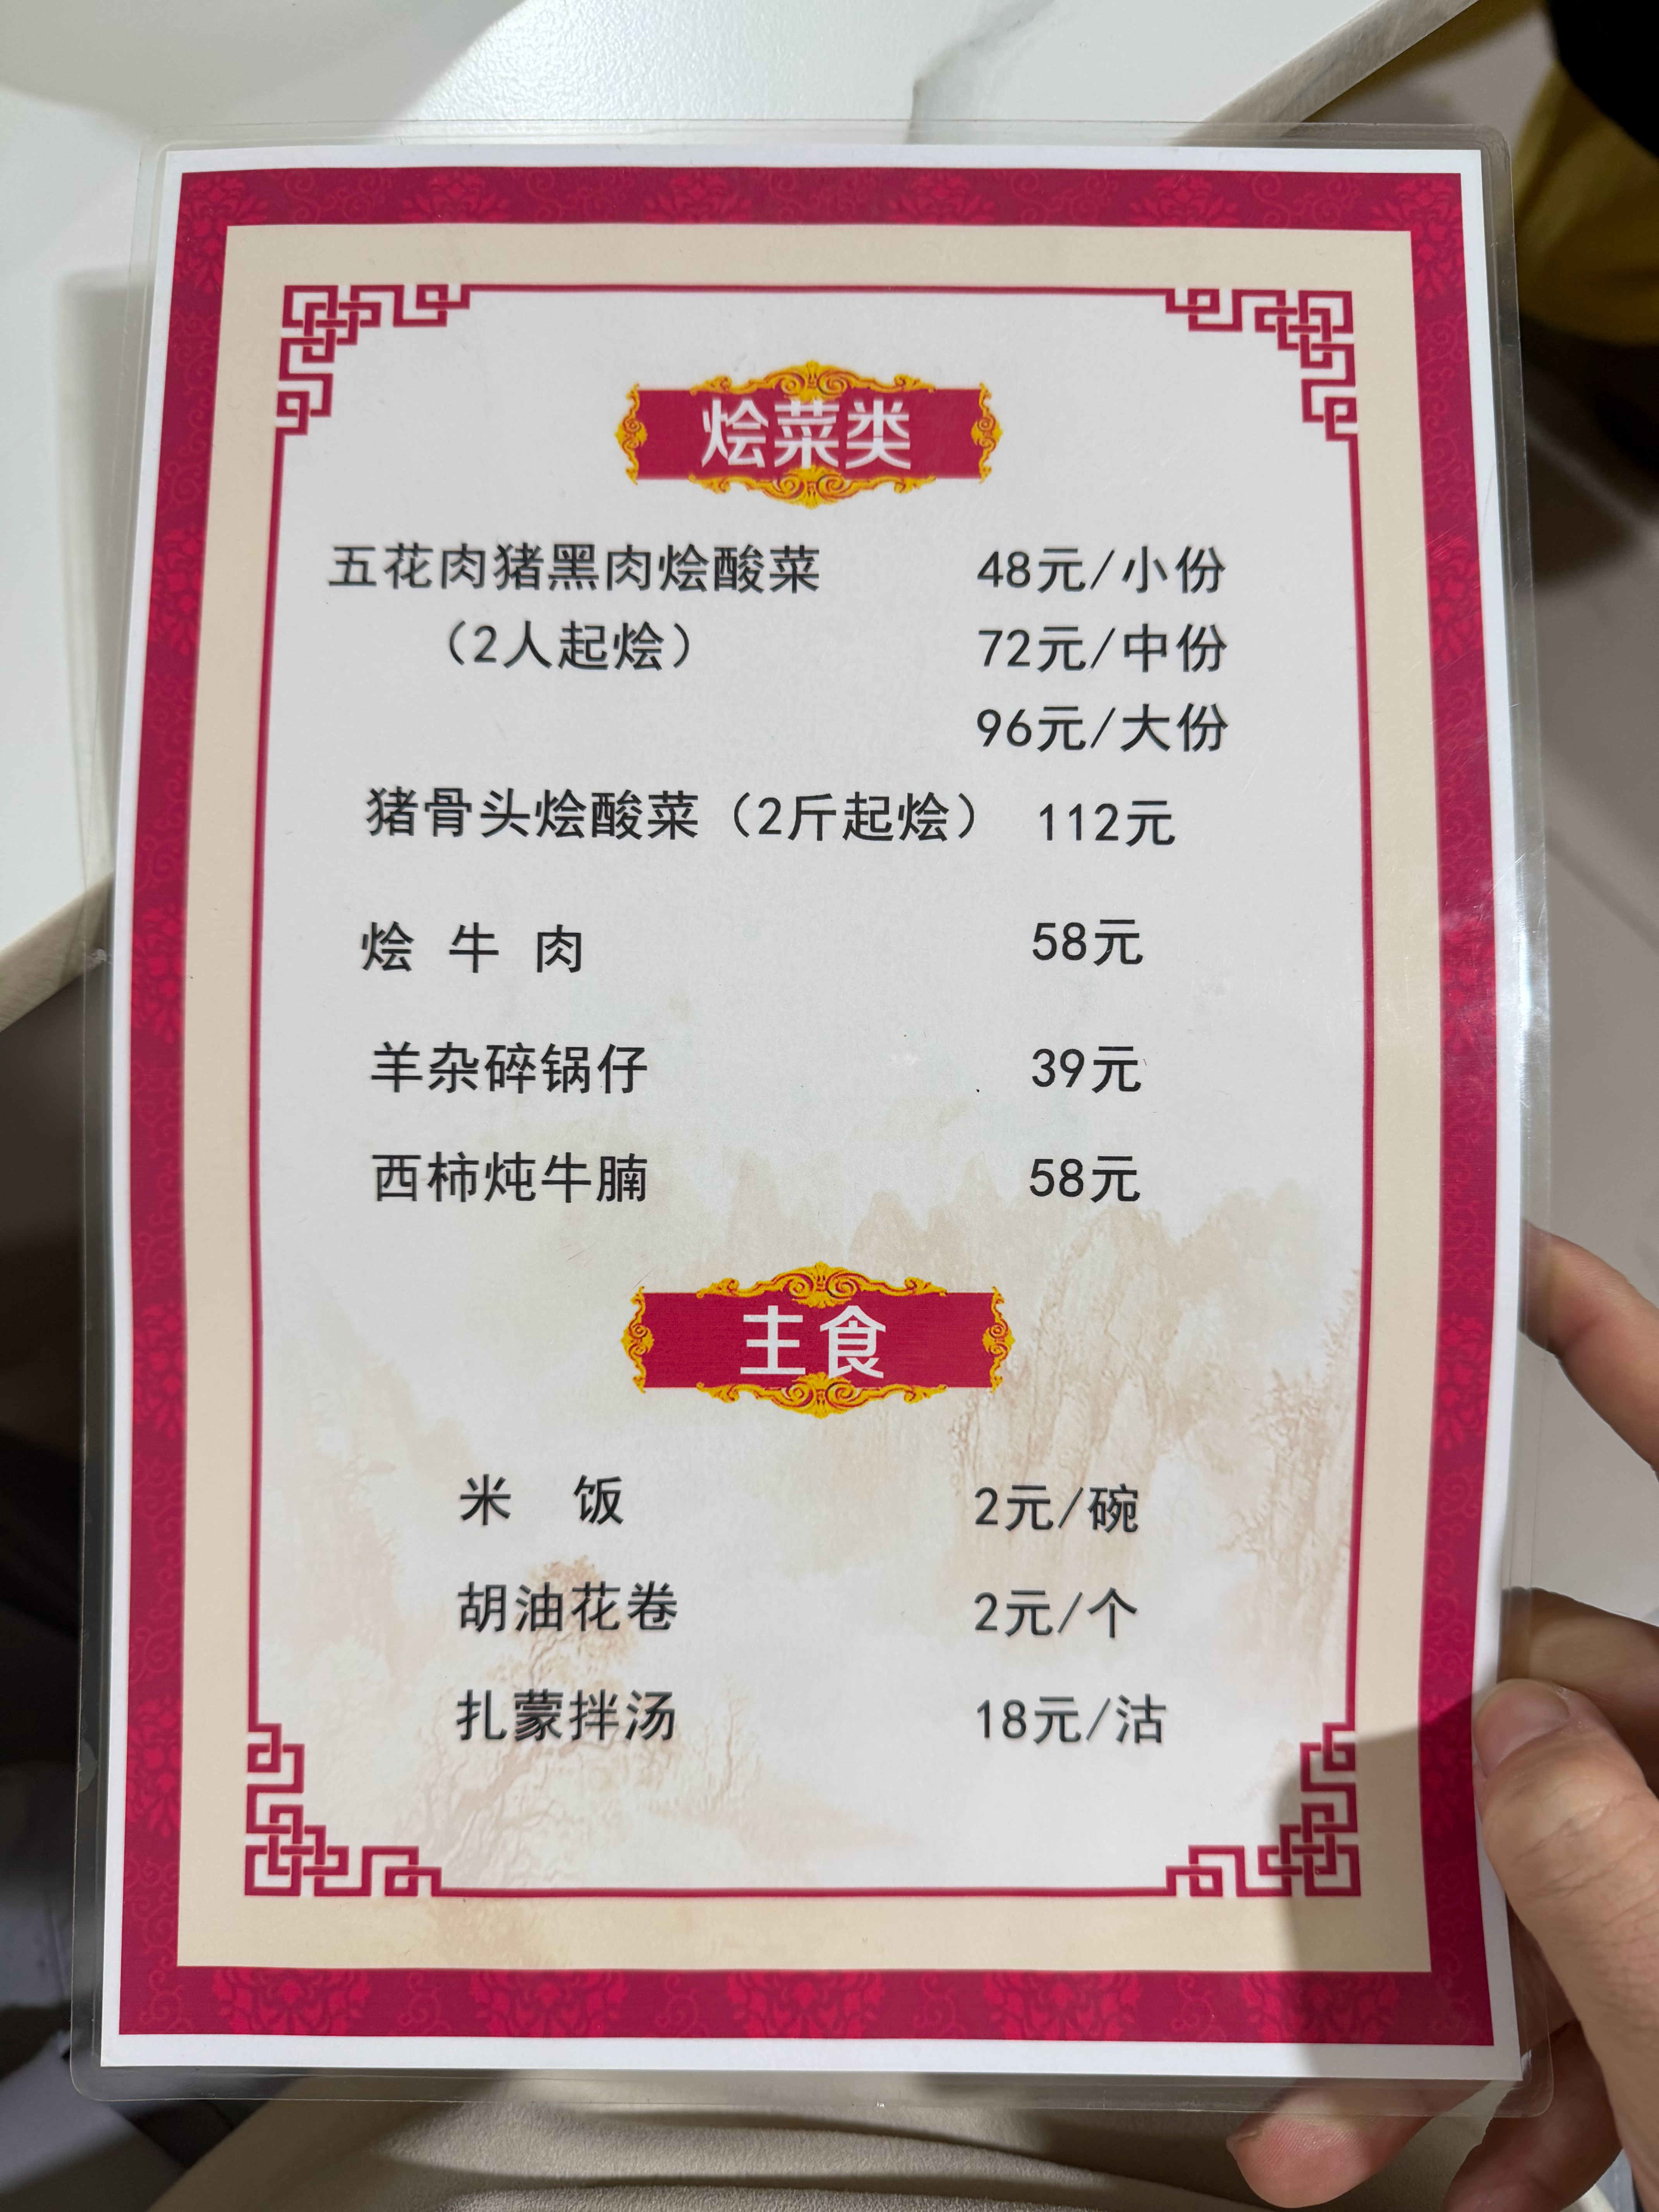 烩菜类
五花肉猪黑肉烩酸菜 48元/小份
（2人起烩） 72元/中份
96元/大份
猪骨头烩酸菜（2斤起烩） 112元
烩 牛 肉 58元
羊杂碎锅仔 39元
西柿炖牛腩 58元
主食
米 饭 2元/碗
胡油花卷 2元/个
扎蒙拌汤 18元/沽